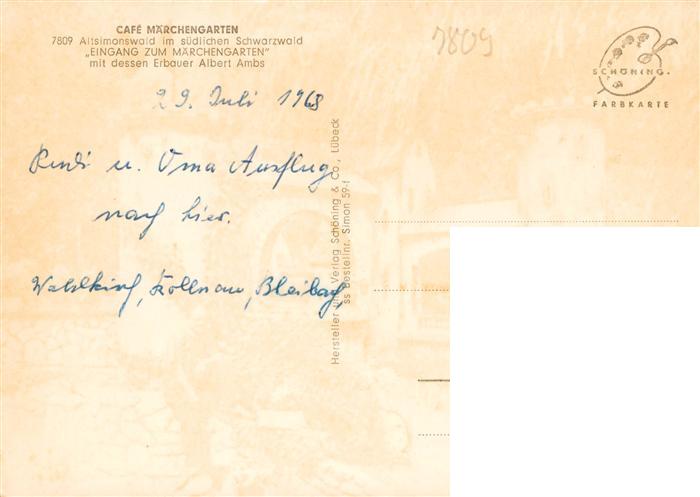 CAFÉ MÄRCHENGARTEN
7809 Altsimonswald im südlichen Schwarzwald
„EINGANG ZUM MÄRCHENGARTEN"
mit dessen Erbauer Albert Ambs
7809
SCHÖNING
FARBKARTE
29. Juli 1968
Rudi u. Oma Ausflug
nach hier.
Waldkirch, Kollnau, Bleibach,
Hersteller und Verlag Schöning & Co., Lübeck
Ss Bestellnr. Simon 59 f